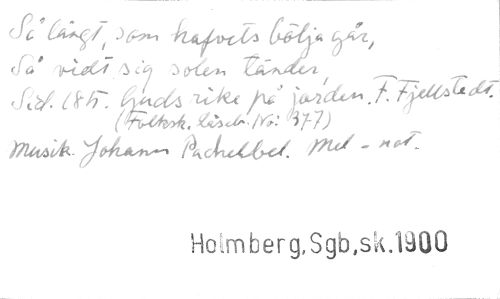 Så långt, som hafvets bölja går,
Så vidt sig solen tänder,
Sid. 185. Guds rike på jorden. F. Fjellstedt.
(Folksk. läseb. No: 377)
Musik Johann Pachelbel. Mel-not.
Holmberg,Sgb,sk.1900